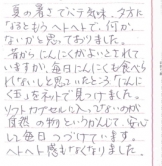 夏の暑さでバテ気味。夕方に
なるともうヘトヘトで、何か
ないかと思っておりました。
昔からにんにくがよいとされて
いますが、毎日にんにくも食べら
れないしと思っていたところ「にんに
く玉」をネットで見つけました。
ソフトカプセルに入ってないのが
自然の物というかんじで、安心
して毎日つづけています。
ヘトヘト感もなくなりました。